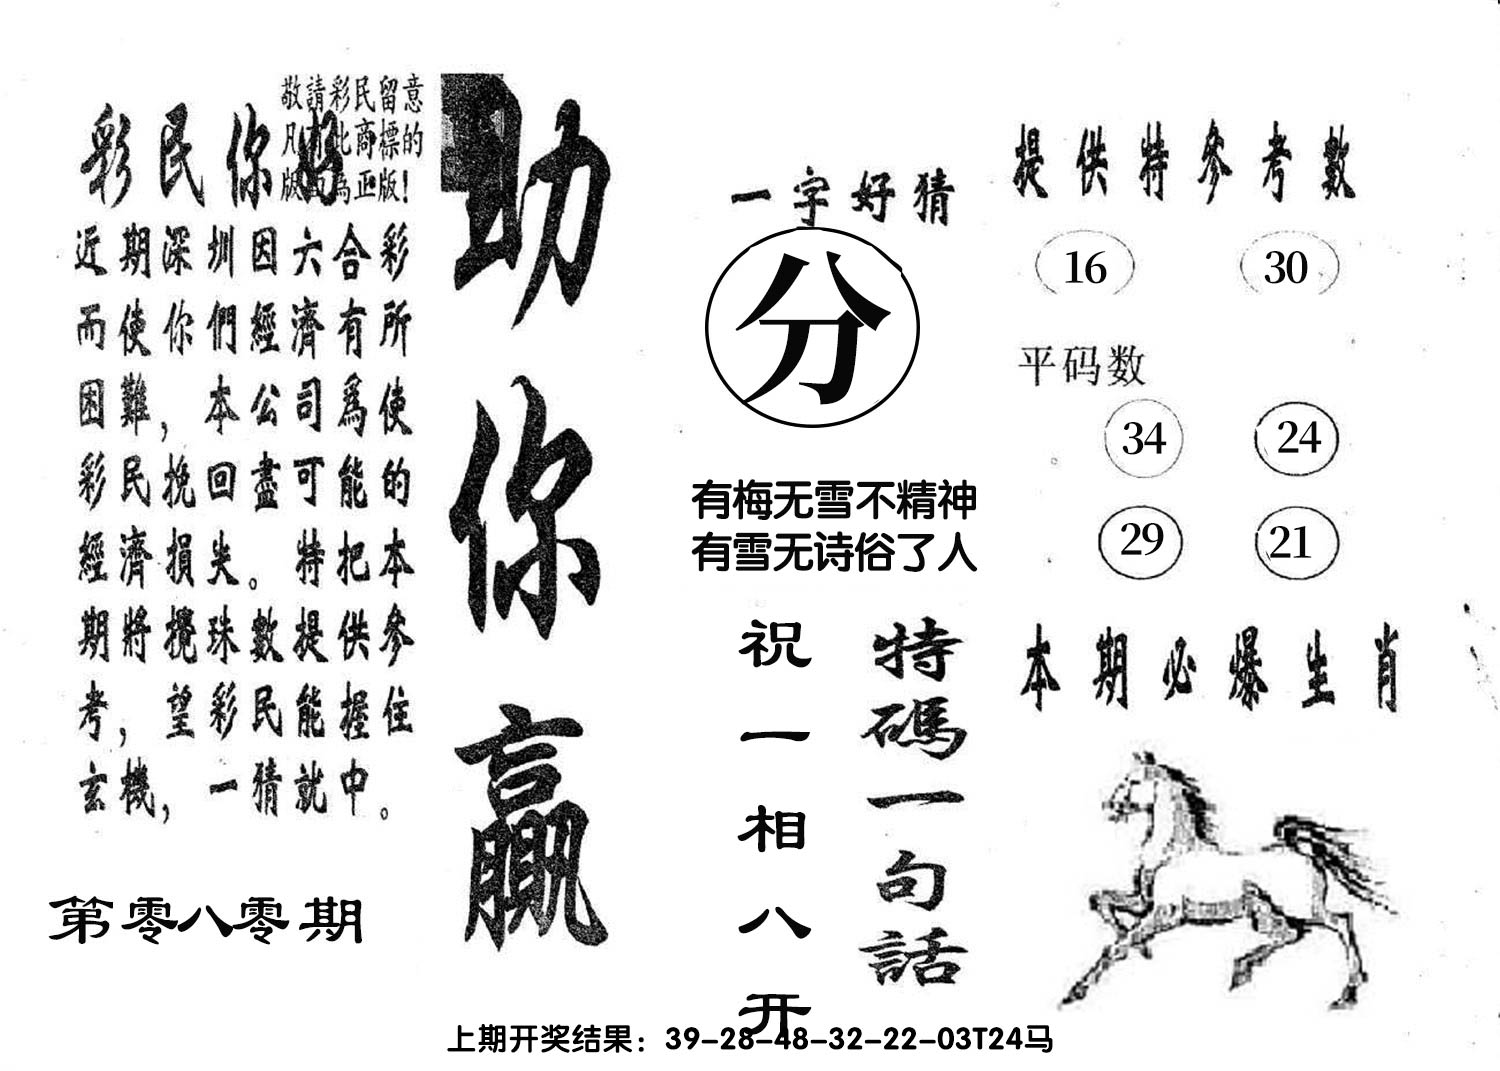 敬請彩民留意
凡有此商標的
版面為正版!
彩民你好
近期深圳因六合彩
而使你們經濟有所
困難，本公司爲使
彩民挽回盡可能的
經濟損失。特把本
期將攪珠數提供參
考，望彩民能握住
玄機，一猜就中。
第零八零期
助你赢
一字好猜
分
有梅无雪不精神
有雪无诗俗了人
特碼一句話
祝一相八开
提供特參考數
16 30
平码数
34 24
29 21
本期必爆生肖
上期开奖结果：39-28-48-32-22-03T24马